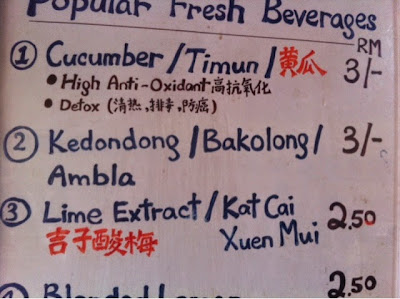 Popular Fresh Beverages
RM
① Cucumber/Timun/黄瓜 3/-
• High Anti-Oxidant 高抗氧化
• Detox (清热,排毒,防癌)
② Kedondong/Bakolong/ 3/-
Ambla
③ Lime Extract/Kat Cai 2.50
吉子酸梅 Xuen Mui
2.50